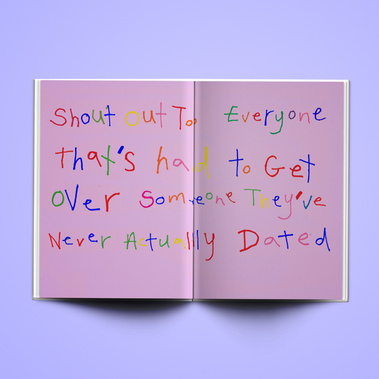 Shout out To Everyone
That's had to Get
Over Someone They've
Never Actually Dated